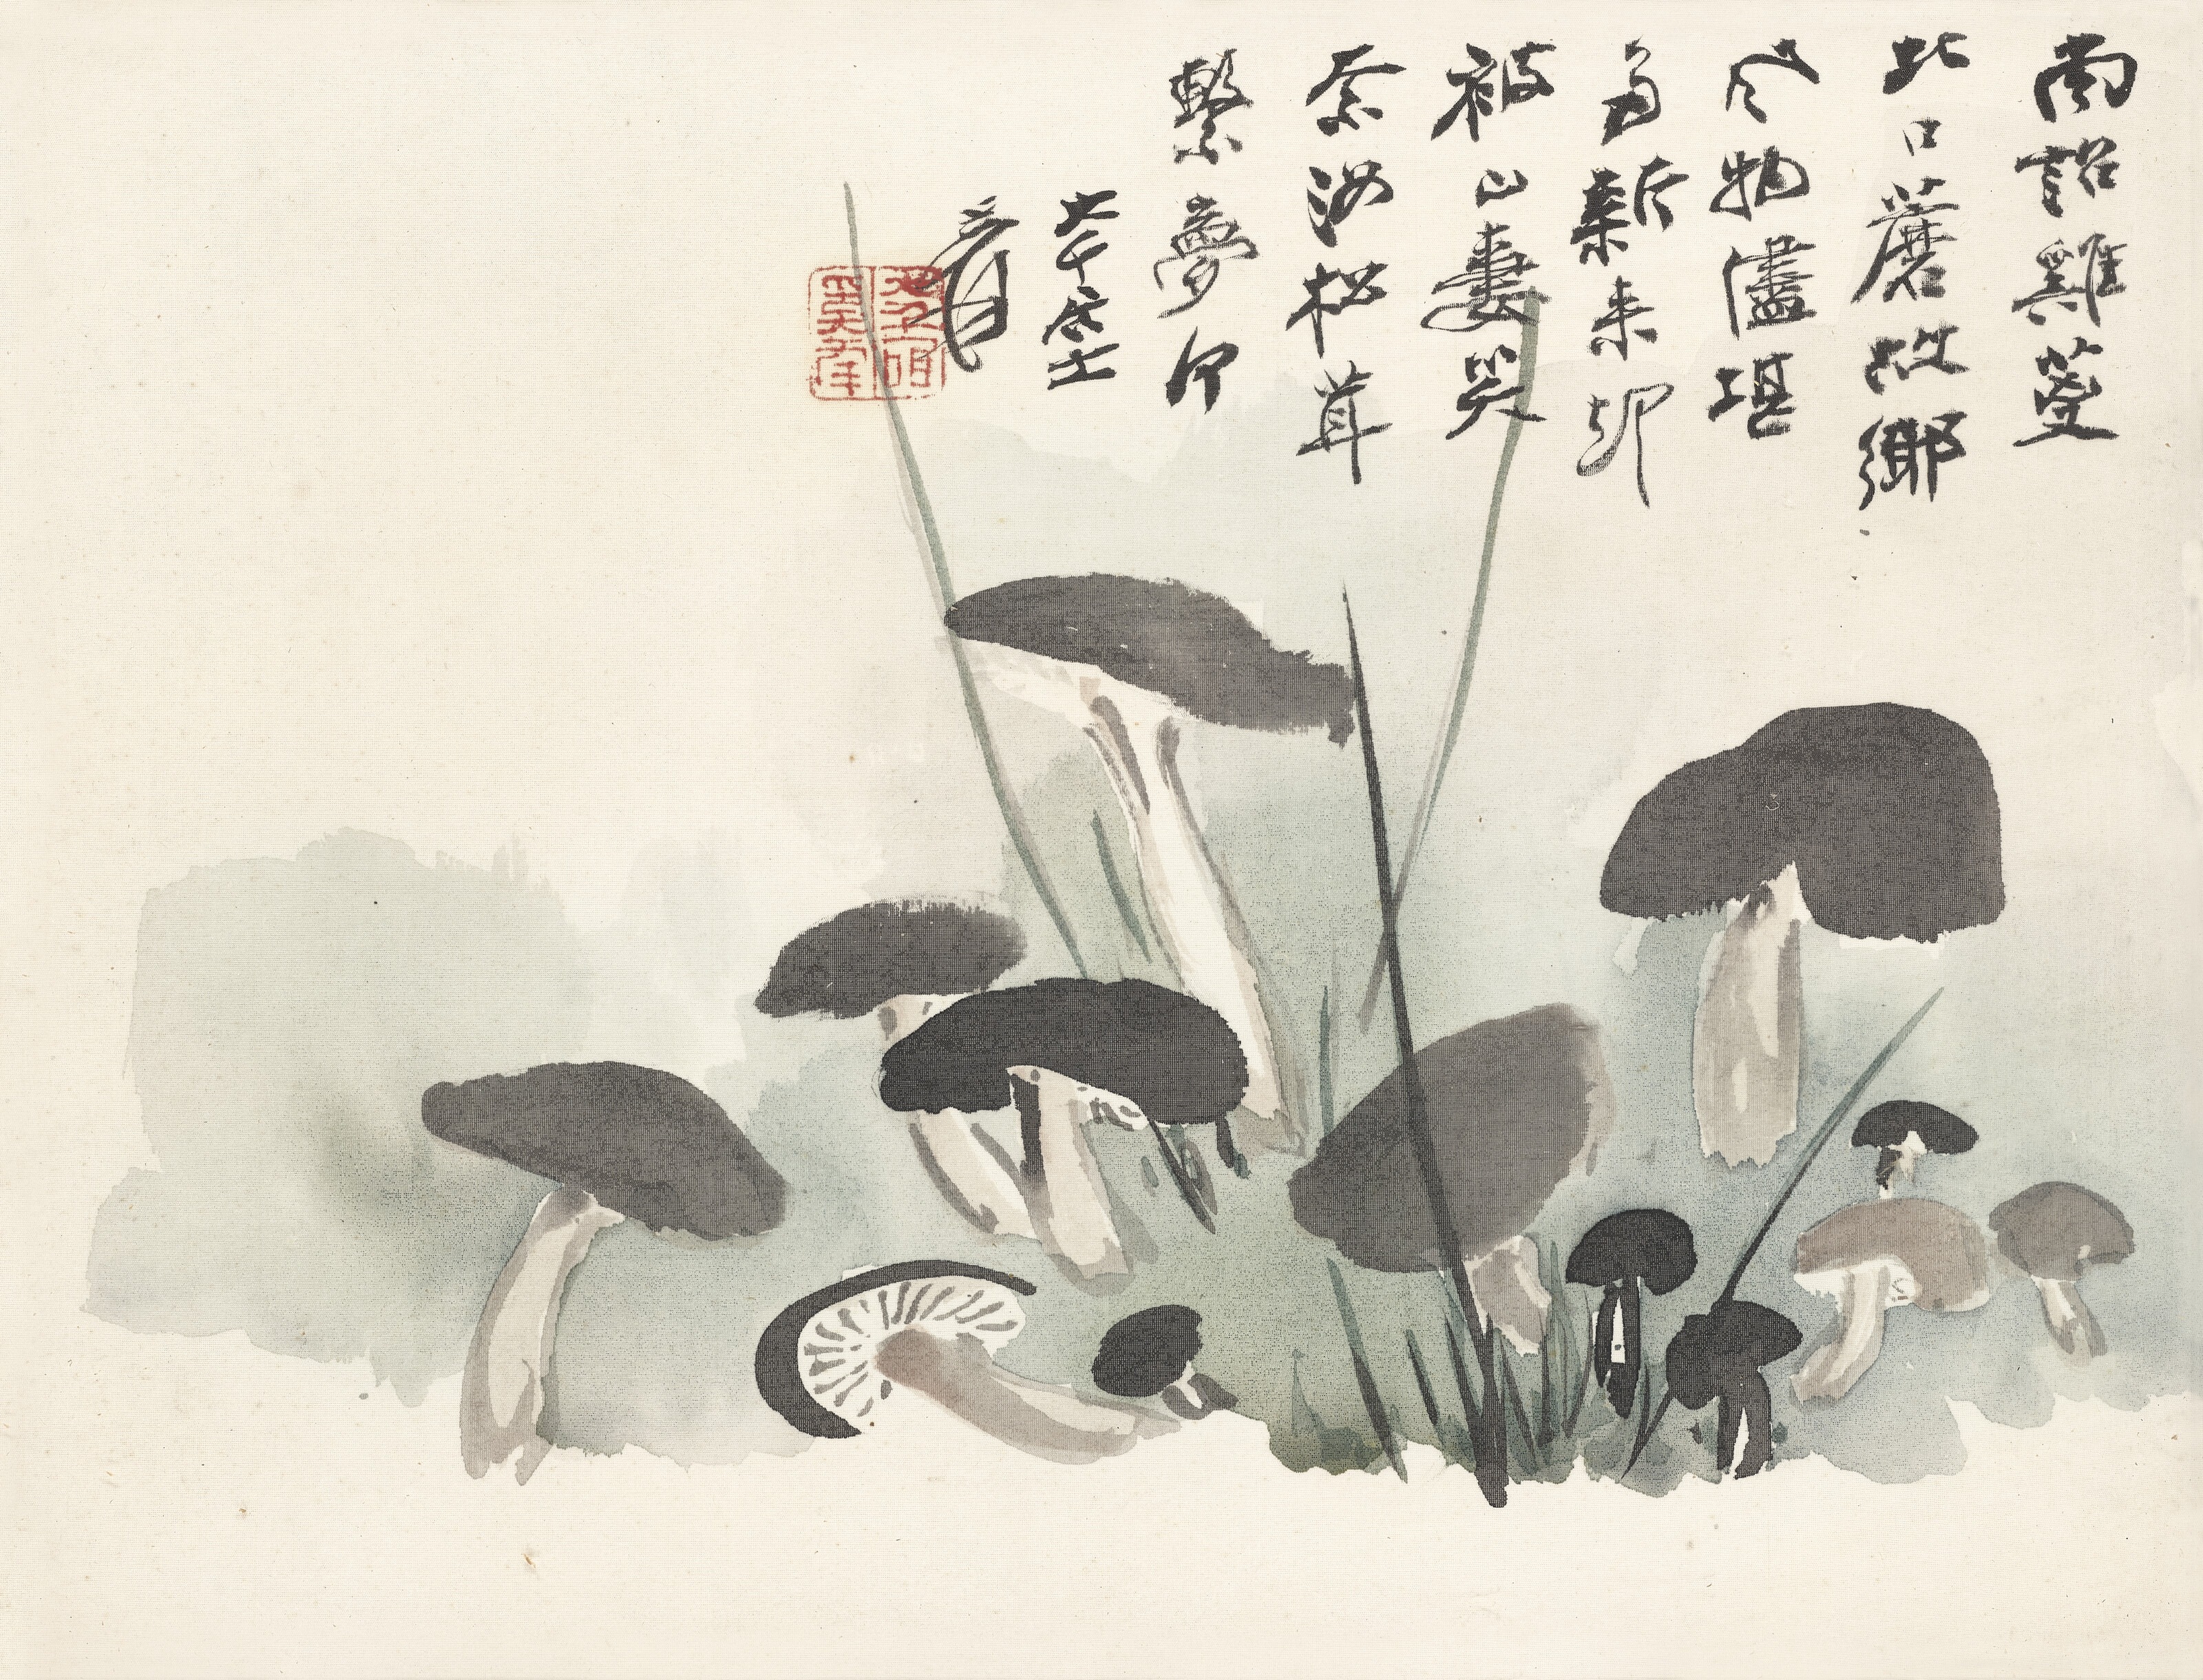 南詔雞葼
北口蘑故鄉
風物儘堪
多新來卻
被山妻笑
奈汝松茸
繫夢何
大千居士
爰